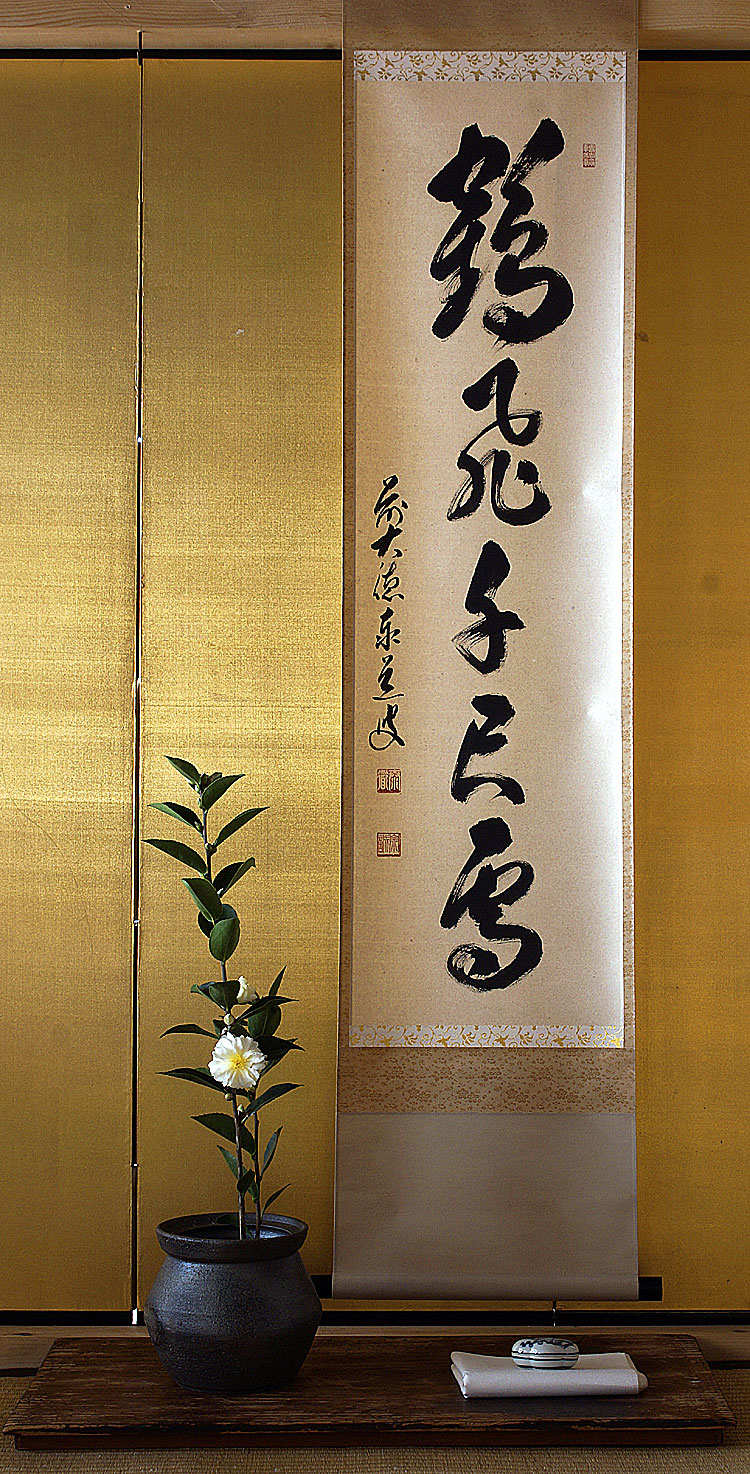 鶴飛千尺雪
前大徳泰道叟